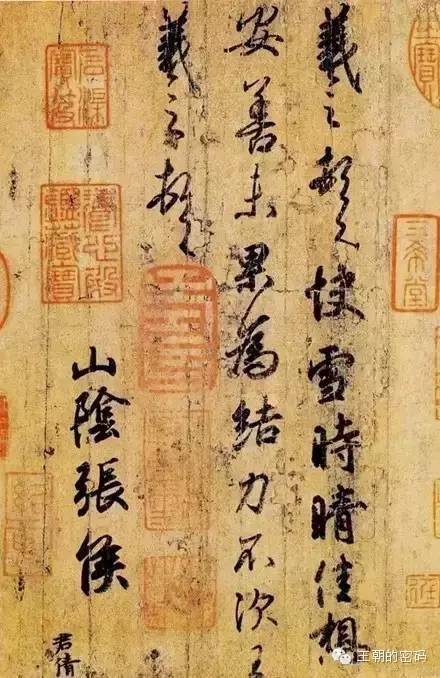 羲之頓首快雪時晴佳想
安善未果為結力不次王
羲之頓首
山陰張侯
君倩
三希堂
養心殿鑑藏寶
王朝的密码